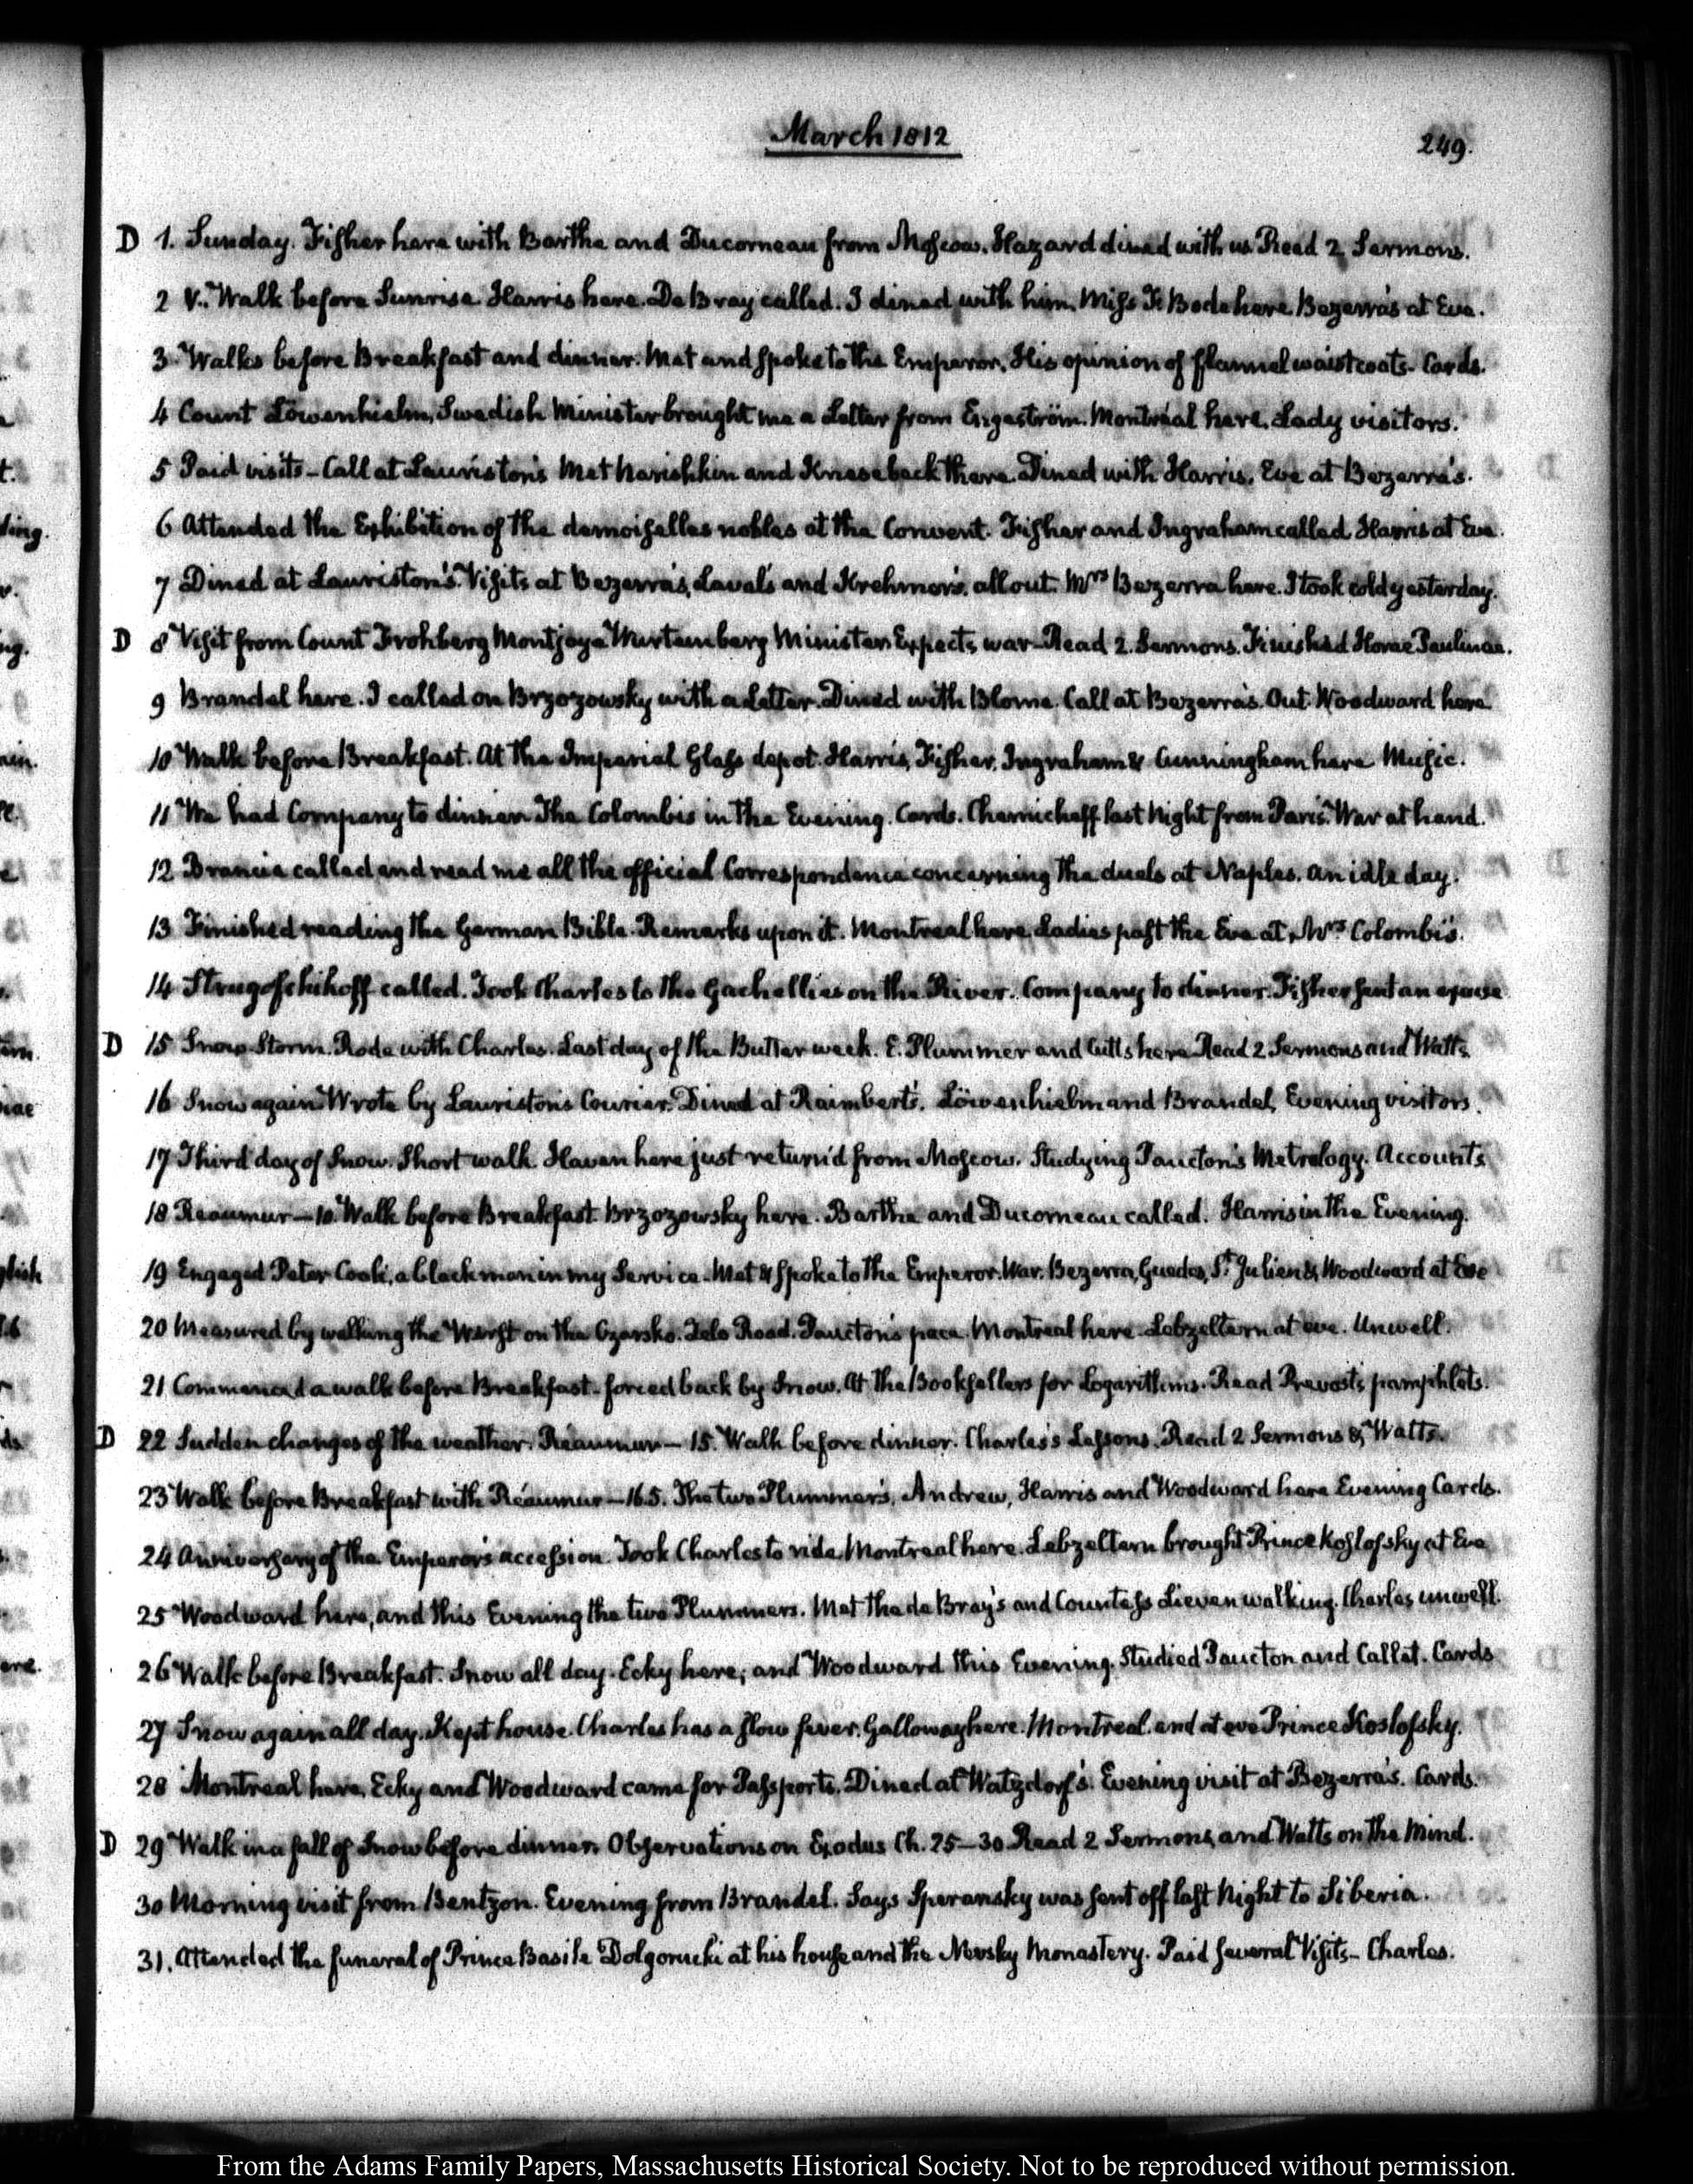 March 1812
249.
D 1. Sunday. Fisher here with Barthe and Ducorneau from Moscow. Hazard dined with us. Read 2 Sermons.
2 V. Walk before Sunrise. Harris here. De Bray called. I dined with him. Miss F. Bode here. Bezerra's at Eve.
3 Walks before Breakfast and dinner. Met and spoke to the Emperor. His opinion of flannel waistcoats. Cards.
4 Count Löwenhielm, Swedish Minister brought me a Letter from Engeström. Montréal here. Lady visitors.
5 Paid visits—Call at Lauriston's Met Narishkin and Knesebeck there. Dined with Harris. Eve at Bezerra's.
6 Attended the Exhibition of the demoiselles nobles at the Convent. Fisher and Ingraham called Harris at Eve.
7 Dined at Lauriston's. Visits at Bezerra's, Laval's and Krehmer's. all out. Mrs Bezerra here. I took cold yesterday.
D 8 Visit from Count Frohberg Montjoye Wurtemberg Minister. Expects war—Read 2 Sermons. Finished Horae Paulinae.
9 Brandel here. I called on Brzozowsky with a Letter. Dined with Blome. Call at Bezerra's. Out. Woodward here
10 Walk before Breakfast. At the Imperial Glass depot. Harris, Fisher, Ingraham & Cunningham here Music.
11 We had Company to dinner. The Colombis in the Evening. Cards. Chernicheff last Night from Paris. War at hand.
12 Brancia called and read me all the official Correspondence concerning the duels at Naples. An idle day.
13 Finished reading the German Bible. Remarks upon it. Montreal here. Ladies past the Eve at Mrs Colombi's.
14 Strugofschikoff called. Took Charles to the Gachellies on the River. Company to dinner. Fisher sent an excuse
D 15 Snow Storm. Rode with Charles. Last day of the Butter week. E. Plummer and Cutts here Read 2 Sermons and Watts
16 Snow again. Wrote by Lauriston's Courier. Dined at Raimbert's. Löwenhielm and Brandel, Evening visitors.
17 Third day of Snow. Short walk. Haven here just return'd from Moscow. Studying Paucton's Metrology. Accounts
18 Reaumur—10. Walk before Breakfast. Brzozowsky here. Barthe and Ducorneau called. Harris in the Evening.
19 Engaged Peter Cook, a black man in my Service. Met & spoke to the Emperor. War. Bezerra, Guedes, St Julien & Woodward at Eve
20 Measured by walking the Werst on the Czarsko-Zelo Road. Paucton's pace. Montreal here. Lebzeltern at eve. Unwell.
21 Commenced a walk before Breakfast—forced back by Snow. At the Booksellers for Logarithms. Read Prevost's pamphlets.
D 22 Sudden changes of the weather. Réaumur—15. Walk before dinner. Charles's Lessons. Read 2 Sermons & Watts.
23 Walk before Breakfast with Réaumur—16.5. The two Plummer's, Andrew, Harris and Woodward here Evening Cards.
24 Anniversary of the Emperor's accession. Took Charles to ride. Montreal here. Lebzeltern brought Prince Koslofsky at Eve
25 Woodward here, and this Evening the two Plummers. Met the de Bray's and Countess Lieven walking. Charles unwell.
26 Walk before Breakfast. Snow all day. Ecky here, and Woodward this Evening. Studied Paucton and Callet. Cards
27 Snow again all day. Kept house. Charles has a slow fever. Galloway here. Montreal. and at eve Prince Koslofsky.
28 Montreal here. Ecky and Woodward came for Passports. Dined at Watzdorf's. Evening visit at Bezerra's. Cards.
D 29 Walk in a fall of Snow before dinner. Observations on Exodus Ch. 25—30 Read 2 Sermons, and Watts on the Mind.
30 Morning visit from Bentzon. Evening from Brandel. Says Speransky was sent off last Night to Siberia.
31. Attended the funeral of Prince Basile Dolgorucki at his house and the Nevsky Monastery. Paid several Visits—Charles.
From the Adams Family Papers, Massachusetts Historical Society. Not to be reproduced without permission.